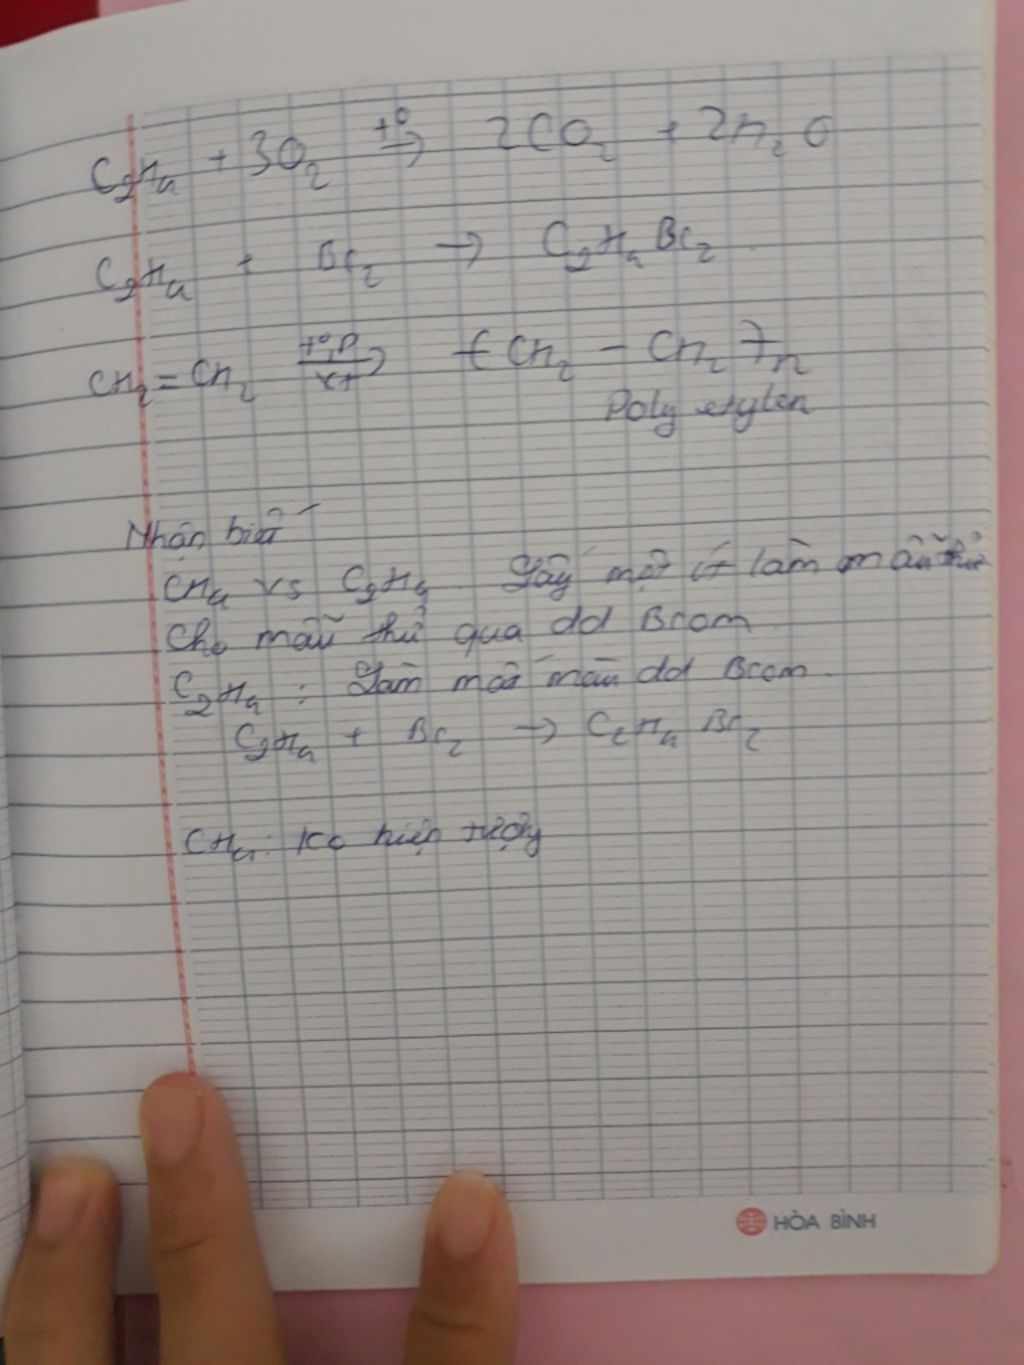 C₂H₄ + 3O₂ →(t°) 2CO₂ + 2H₂O
C₂H₄ + Br₂ → C₂H₄Br₂
CH₂ = CH₂ →(t°, p / xt) (CH₂ – CH₂)n
Poly etylen
Nhận biết
CH₄ vs C₂H₄ Lấy một ít làm mẫu thử
Cho mẫu thử qua dd Brom
C₂H₄ : Làm mất màu dd Brom
C₂H₄ + Br₂ → C₂H₄Br₂
CH₄ : Ko hiện tượng
HÒA BÌNH